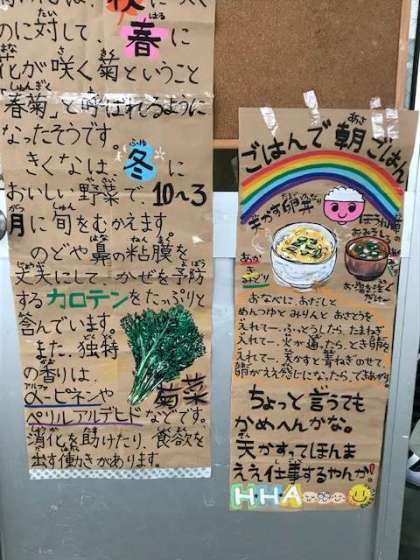 秋
のに対して春に
花が咲く菊ということ
春菊」と呼ばれるように
なったそうです。
きくなは、冬に
おいしい野菜で、10~3
月に旬をむかえます。
のどや鼻の粘膜を
丈夫にして、かぜを予防
するカロテンをたっぷりと
含んでいます。
また、独特
の香りは、
α-ピネンや
ペリルアルデヒドなどです。
消化を助けたり、食欲を
出す働きがあります。
菊菜
ごはんで朝ごはん
天かす卵丼
あか
きみどり
おなべに、おだしと
めんつゆとみりんとおさとうを
えれてー、ふっとうしたら、たまねぎ
えれてー、火が通ったら、とき卵を
えれてー、天かすと青ねぎのせて、
卵がええ感じになったら、できあがり
ちょっと言うても
かめへんかな。
天かすってほんま
ええ仕事するやんか。
HHA